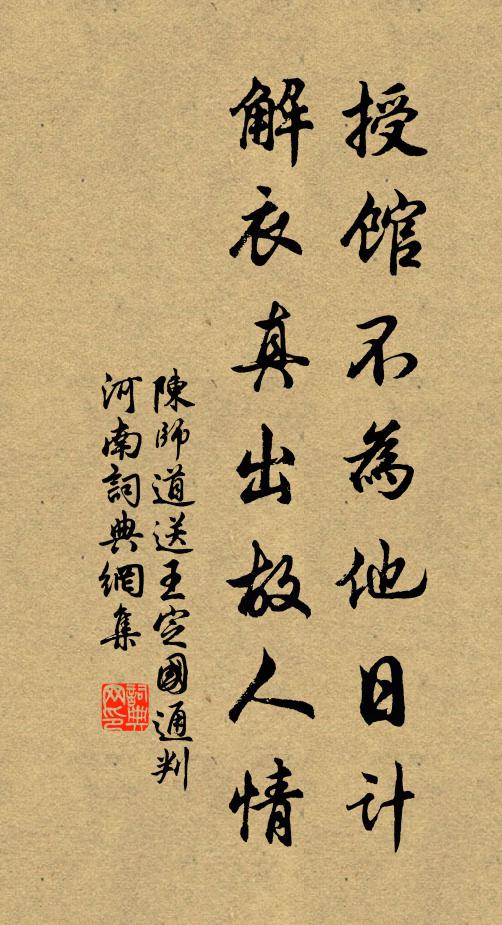 授館不為他日計
解衣真出故人情
陳師道送王定國通判
河南詞典網集
詞典
网印